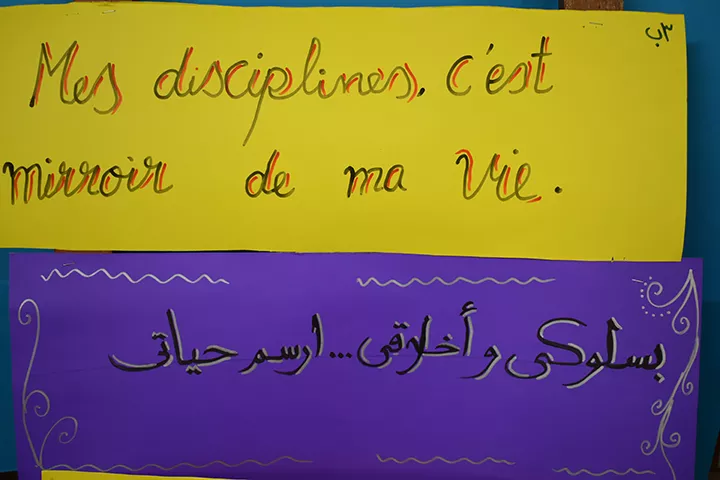 ٣ب
Mes disciplines, c'est
mirroir de ma vie.
بسلوكى وأخلاقى... ارسم حياتى